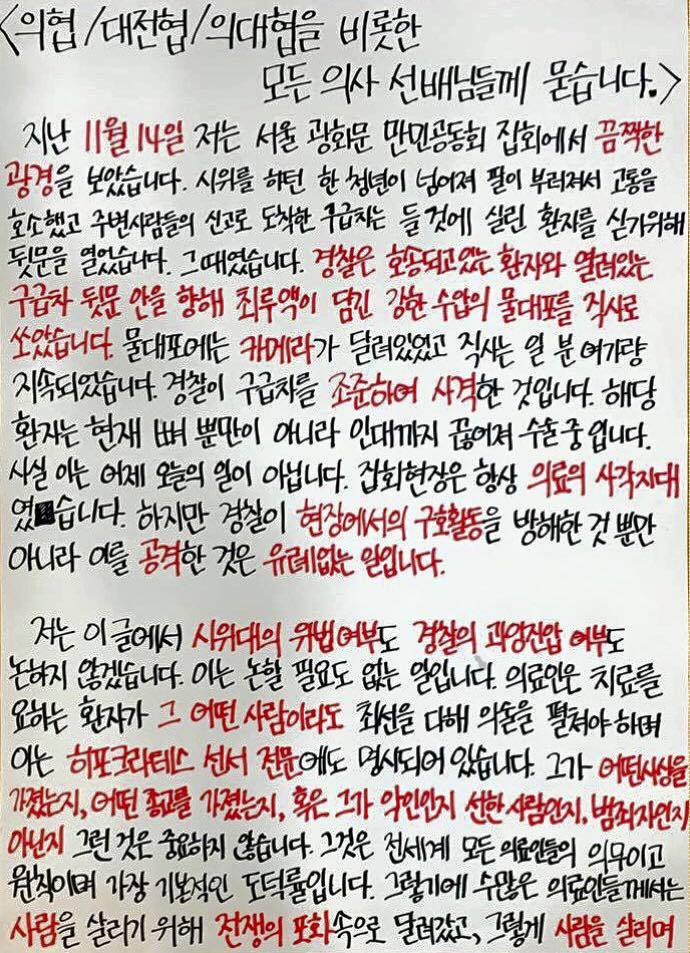 <의협/대전협/의대협을 비롯한
모든 의사 선배님들께 묻습니다.>
지난 11월 14일 저는 서울 광화문 만민공동회 집회에서 끔찍한
광경을 보았습니다. 시위를 하던 한 청년이 넘어져 팔이 부러져서 고통을
호소했고 주변사람들의 신고로 도착한 구급차는 들것에 실린 환자를 싣기위해
뒷문을 열었습니다. 그때였습니다. 경찰은 호송되고있는 환자와 열려있는
구급차 뒷문 안을 향해 최루액이 담긴 강한 수압의 물대포를 직사로
쏘았습니다. 물대포에는 카메라가 달려있었고 직사는 일 분 여가량
지속되었습니다. 경찰이 구급차를 조준하여 사격한 것입니다. 해당
환자는 현재 뼈 뿐만이 아니라 인대까지 끊어져 수술중 입니다.
사실 이는 어제 오늘의 일이 아닙니다. 집회현장은 항상 의료의 사각지대
였습니다. 하지만 경찰이 현장에서의 구호활동을 방해한 것 뿐만
아니라 이를 공격한 것은 유례없는 일입니다.
저는 이 글에서 시위대의 위법여부도 경찰의 과잉진압 여부도
논하지 않겠습니다. 이는 논할 필요도 없는 일입니다. 의료인은 치료를
요하는 환자가 그 어떤 사람이라도 최선을 다해 의술을 펼쳐야 하며
이는 히포크라테스 선서 전문에도 명시되어 있습니다. 그가 어떤사상을
가졌는지, 어떤 종교를 가졌는지, 혹은 그가 악인인지 선한 사람인지, 범죄자인지
아닌지 그런 것은 중요하지 않습니다. 그것은 전세계 모든 의료인들의 의무이고
원칙이며 가장 기본적인 도덕률입니다. 그렇기에 수많은 의료인들께서는
사람을 살리기 위해 전쟁의 포화속으로 달려갔고, 그렇게 사람을 살리며